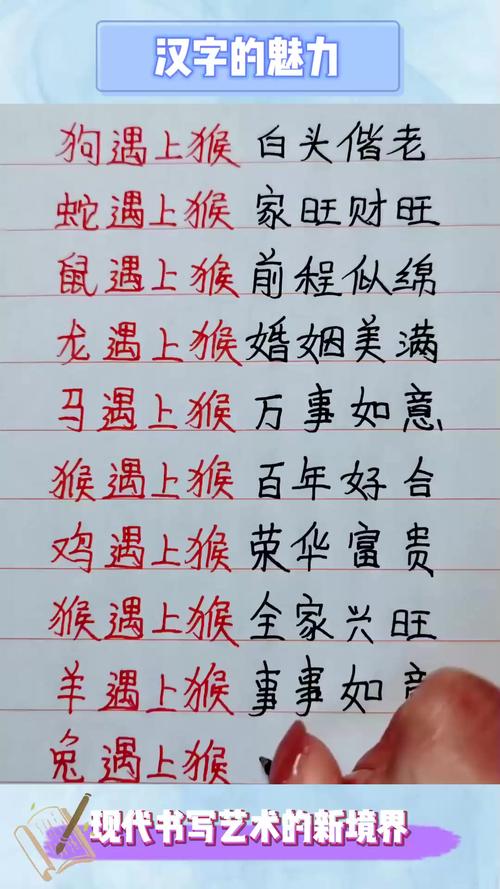 汉字的魅力
狗遇上猴 白头偕老
蛇遇上猴 家旺财旺
鼠遇上猴 前程似绵
龙遇上猴 婚姻美满
马遇上猴 万事如意
猴遇上猴 百年好合
鸡遇上猴 荣华富贵
猴遇上猴 全家兴旺
羊遇上猴 事事如意
兔遇上猴
现代书写艺术的新境界